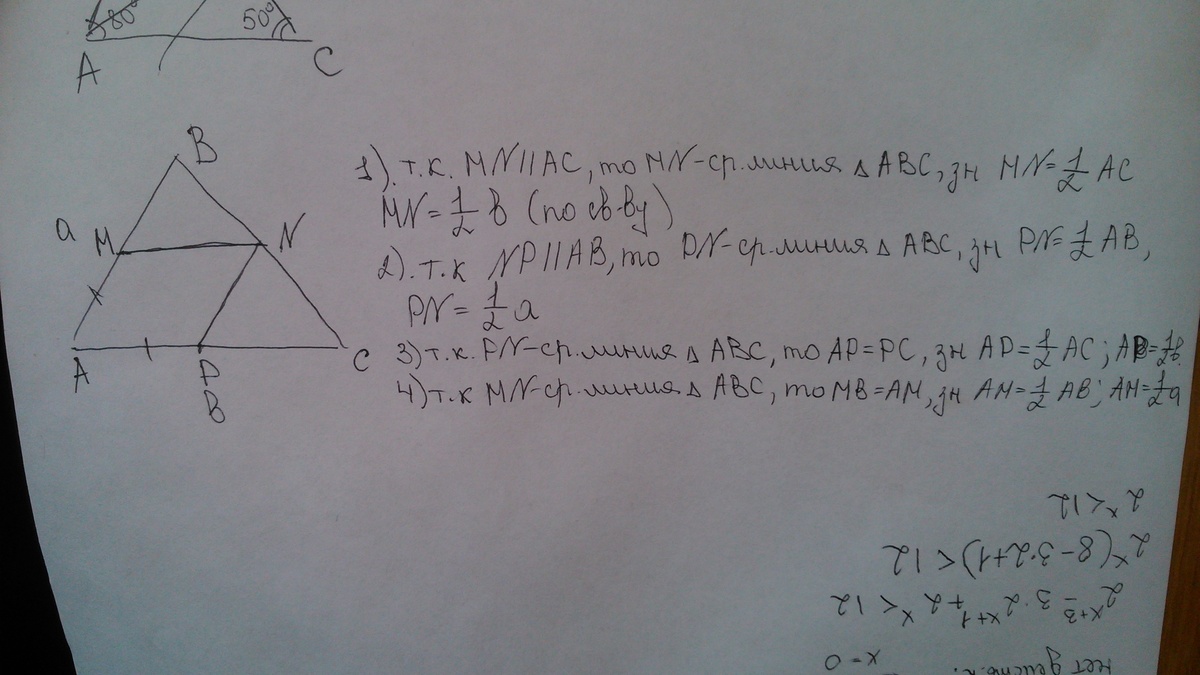 80°
50°
A
C
B
a
M
N
A
P
C
B
1). т.к. MN||AC, то MN-ср.линия △ ABC, зн MN=1/2 AC
MN=1/2 b (по св-ву)
2). т.к NP||AB, то PN-ср.линия △ ABC, зн PN=1/2 AB,
PN=1/2 a
3) т.к. PN-ср.линия △ ABC, то AP=PC, зн AP=1/2 AC; AP=1/2b.
4) т.к MN-ср.линия △ ABC, то MB=AM, зн AM=1/2 AB; AM=1/2a
нет
x=0
2^(x+3) - 3·2^(x+1) + 2^x < 12
2^x(8-3·2+1) < 12
2^x < 12